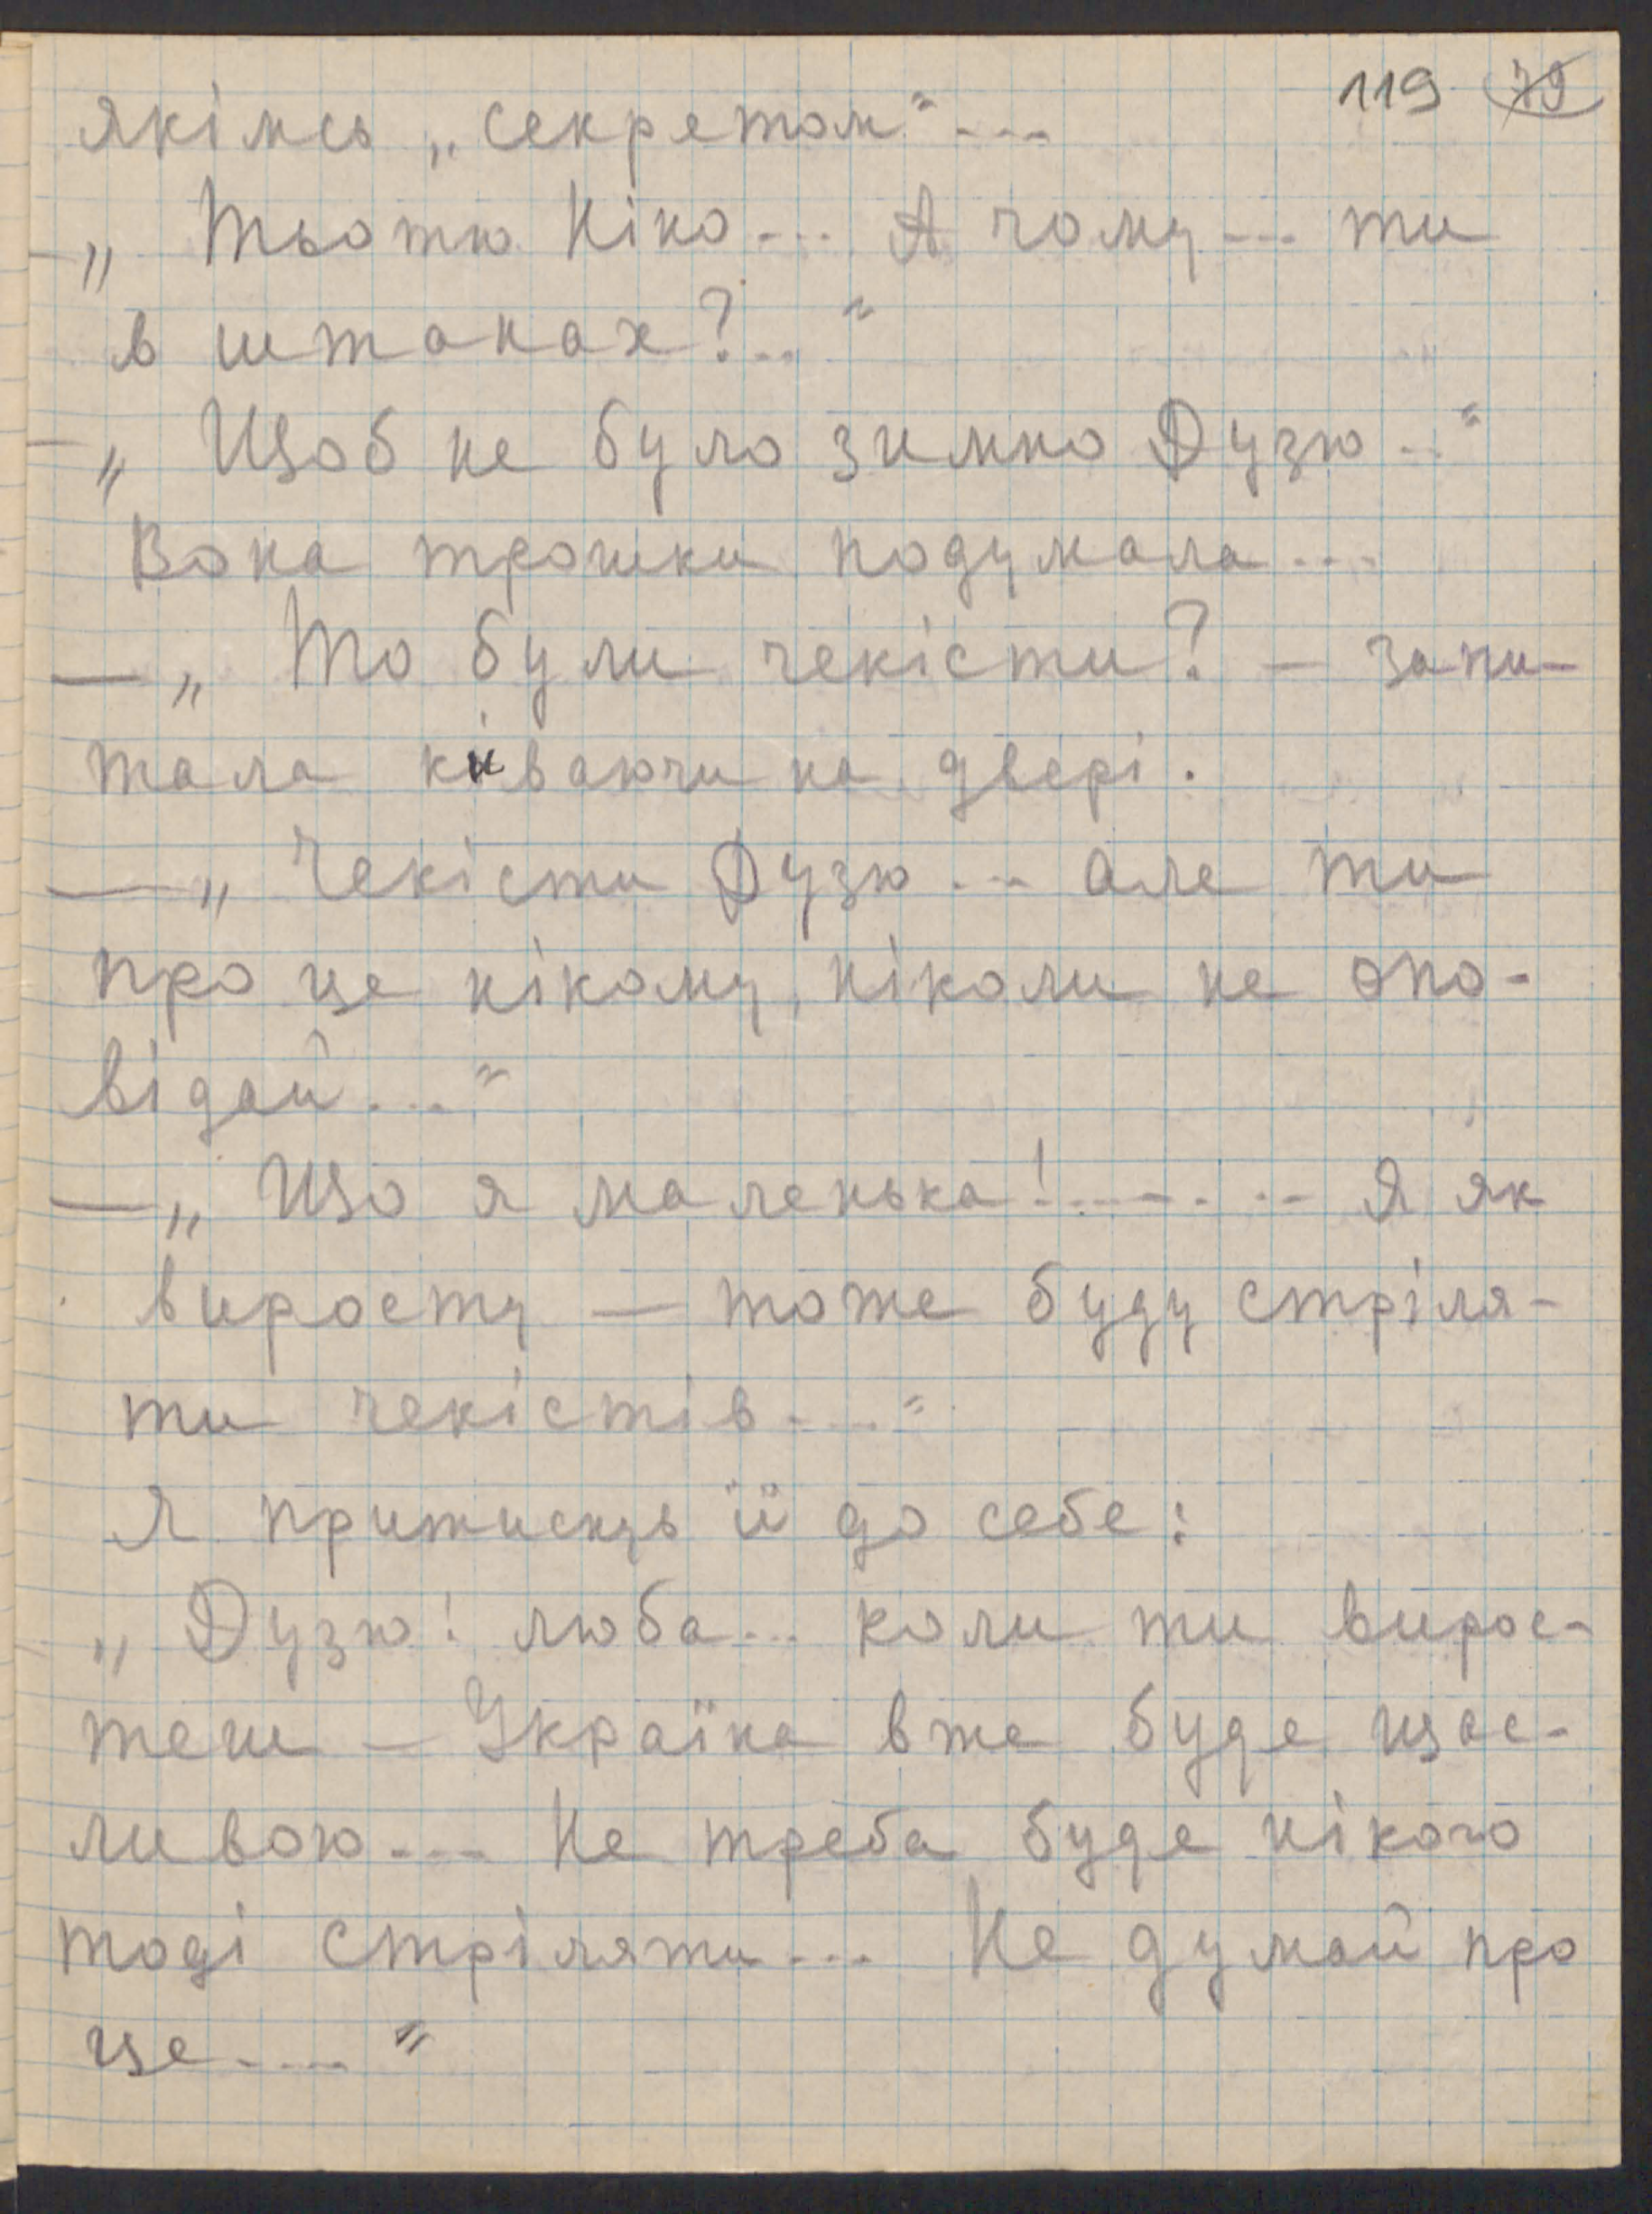 119 79
якімсь „секретом“...
– „Тьотю Ніно... А чому... ти
в штанах?..“
– „Щоб не було зимно Дузю...“
Вона трошки подумала...
– „То були чекісти? – запи-
тала киваючи на двері.
– „Чекісти Дузю... але ти
про це нікому, ніколи не опо-
відай...“
– „Що я маленька!....... Я як
виросту – тоже буду стріля-
ти чекістів....“
Я притиснув її до себе:
– „Дузю! люба... коли ти вирос-
теш – Україна вже буде щас-
ливою... Не треба буде нікого
тоді стріляти... Не думай про
це....“